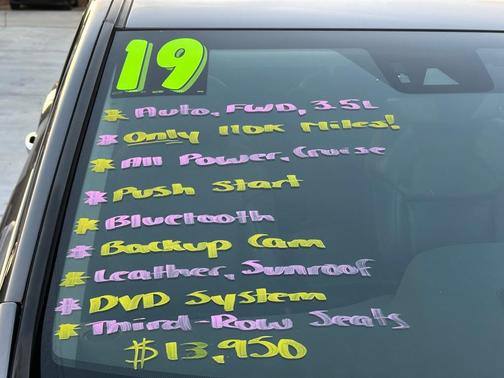 19
* Auto, FWD, 3.5L
* Only 110K Miles!
* All Power, Cruise
* Push Start
* Bluetooth
* Backup Cam
* Leather, Sunroof
* DVD System
* Third-Row Seats
$13,950